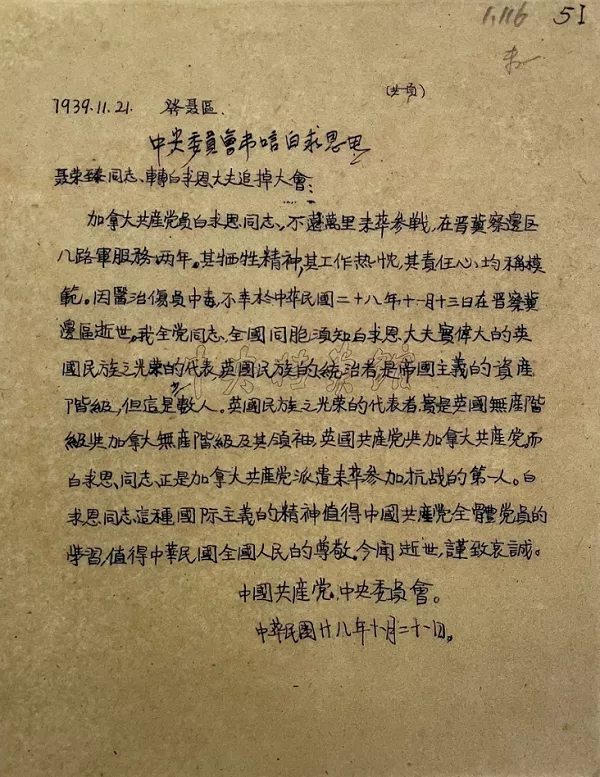 1,116 51
(共一頁)
1939.11.21. 發聶區.
中央委員會弔唁白求恩电
聂荣臻同志、轉白求恩大夫追掉大會:
加拿大共產党員白求恩同志、不遠萬里来华參戰,在晋冀察邊区
八路軍服務两年。其牺牲精神,其工作热忱,其責任心、均稱模
範。因醫治傷員中毒,不幸於中華民國二十八年十一月十三日在晋察冀
邊區逝世。我全党同志、全國同胞須知白求恩大夫實偉大的英
國民族之光荣的代表英國民族的統治者是帝國主義的資產
階級,但這是少數人。英國民族之光荣的代表者,實是英國無產階
級共加拿大無產階級及其領袖英國共產党共加拿大共產党。而
白求恩同志、正是加拿大共產党派遣来华參加抗战的第一人。白
求恩同志這種國际主義的精神值得中國共產党全體党員的
學習,值得中華民國全國人民的尊敬。今聞逝世,謹致哀誠。
中國共產党.中央委員會。
中华民國廿八年十一月二十一日。